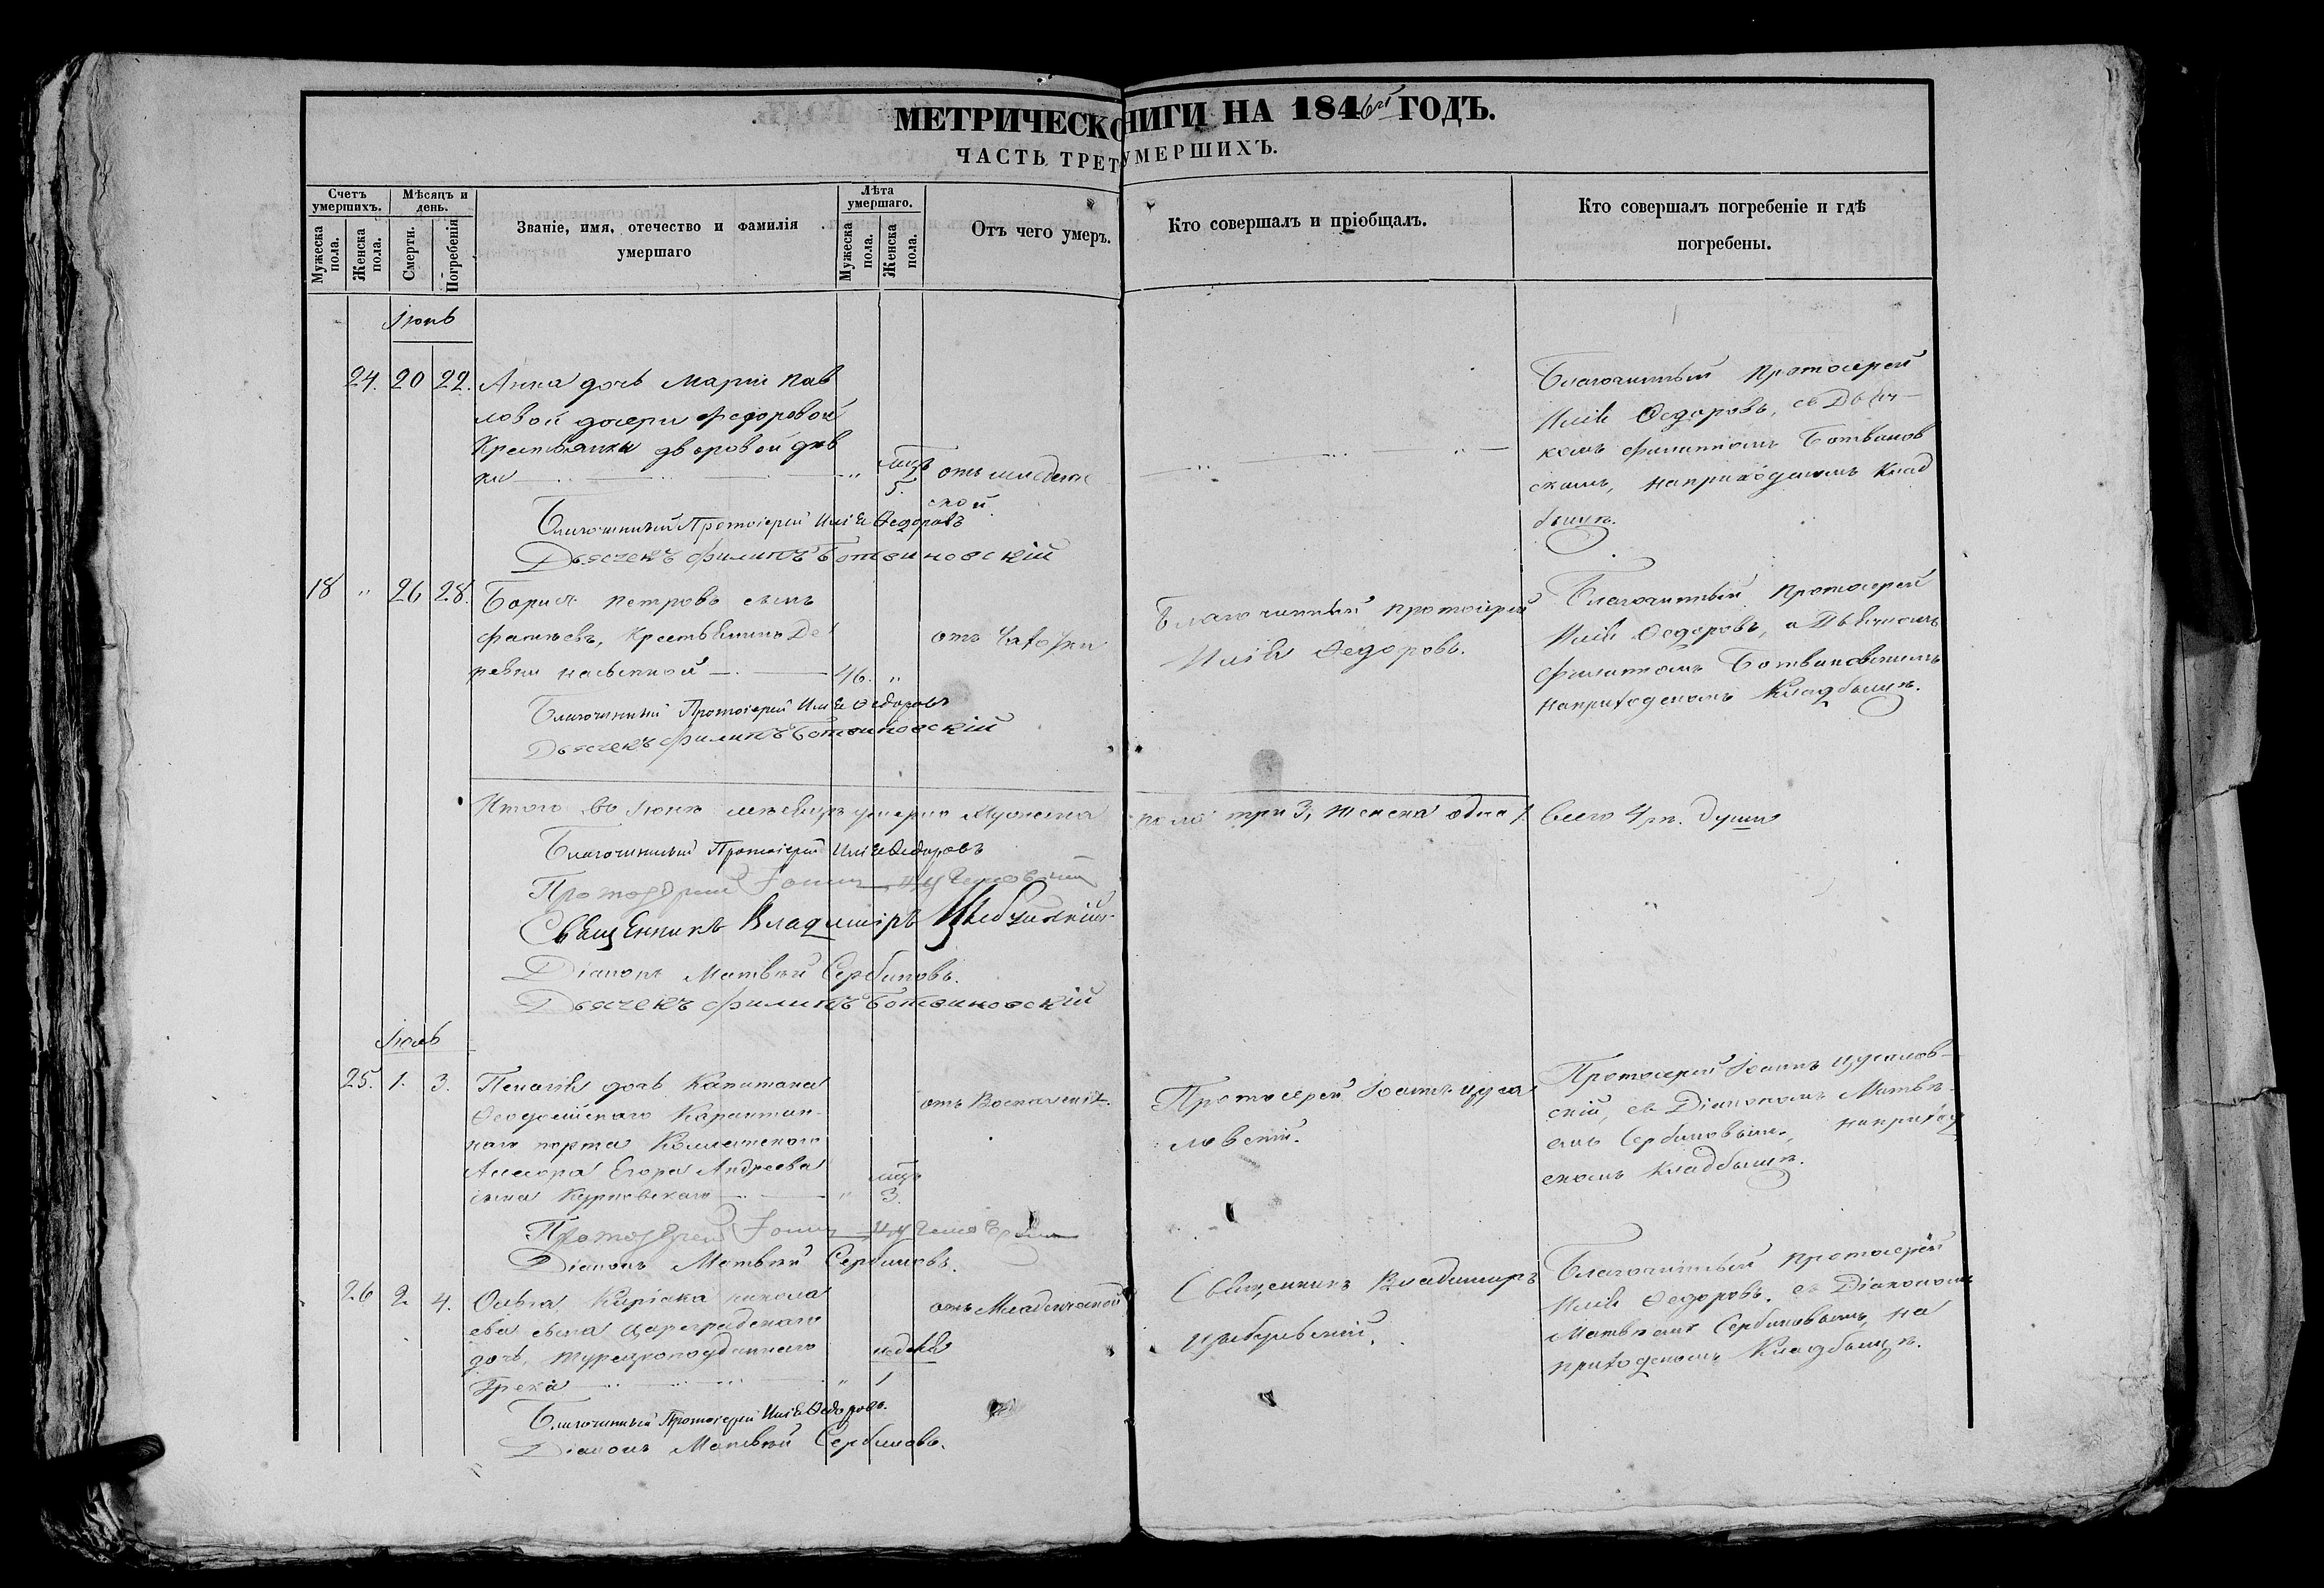 МЕТРИЧЕСКО НИГИ НА 1846й ГОДЪ.
ЧАСТЬ ТРЕТ УМЕРШИХЪ.
Счетъ умершихъ.
Мужеска пола.
Женска пола.
Мѣсяцъ и день.
Смерти.
Погребенія
Званіе, имя, отечество и фамилія
умершаго
Лѣта умершаго.
Мужеска пола.
Женска пола.
Отъ чего умеръ.
Кто совершалъ и пріобщалъ.
Кто совершалъ погребеніе и гдѣ
погребены.
Іюнь
24. 20 22. Анна дочь Маріи Пав
ловой дочери Федоровой
Крестьянки дворовой дѣв
ки мцъ 5. отъ младенч
ской
Благочинный Протоіерей
Илія Ѳедоровъ, съ Дьяч-
комъ Филиппомъ Ботвинов
скимъ, на приходскомъ клад
бищѣ.
Благочинный Протоіерей Илія Ѳедоровъ
Дьячекъ Филиппъ Ботвиновскій
18 " 26 28. Борисъ Петровъ сынъ
крестьянинъ Де
ревни Насыпкой 46. "
отъ чахотки
Благочинный Протоіерей
Илія Ѳедоровъ.
Благочинный Протоіерей
Илія Ѳедоровъ, съ Дьячкомъ
Филиппомъ Ботвиновскимъ
на приходскомъ Кладбищѣ.
Благочинный Протоіерей Илія Ѳедоровъ
Дьячекъ Филиппъ Ботвиновскій
Итого въ Іюнѣ мѣсяцѣ умерло Мужеска пола три 3, женска одна 1. Всего 4ре души
Благочинный Протоіерей Илія Ѳедоровъ
Протоіерей Іоаннъ
Священникъ Владиміръ Цыбульскій
Діаконъ Матвѣй Сербиновъ.
Дьячекъ Филиппъ Ботвиновскій
Іюль
25. 1. 3. Пелагія дочь Капитана
Ѳеодосійскаго Карантин-
наго порта Коллежскаго
Ассесора Егора Андреева
сына " мцъ 3.
отъ Воспаленія.
Протоіерей Іоаннъ
ловскій.
Протоіерей Іоаннъ
скій, съ Діакономъ Матвѣ-
емъ Сербиновымъ, на приход
скомъ кладбищѣ.
Протоіерей Іоаннъ
Діаконъ Матвѣй Сербиновъ.
26 2 4. Ольга Киріака Никола
ева сына Цареградскаго
дочь, Турецкоподданнаго
Грека " недѣля 1
отъ Младенческой
Священникъ Владиміръ
Цыбульскій.
Благочинный Протоіерей
Илія Ѳедоровъ, съ Діакономъ
Матвѣемъ Сербиновымъ, на
приходскомъ Кладбищѣ.
Благочинный Протоіерей Илія Ѳедоровъ.
Діаконъ Матвѣй Сербиновъ.